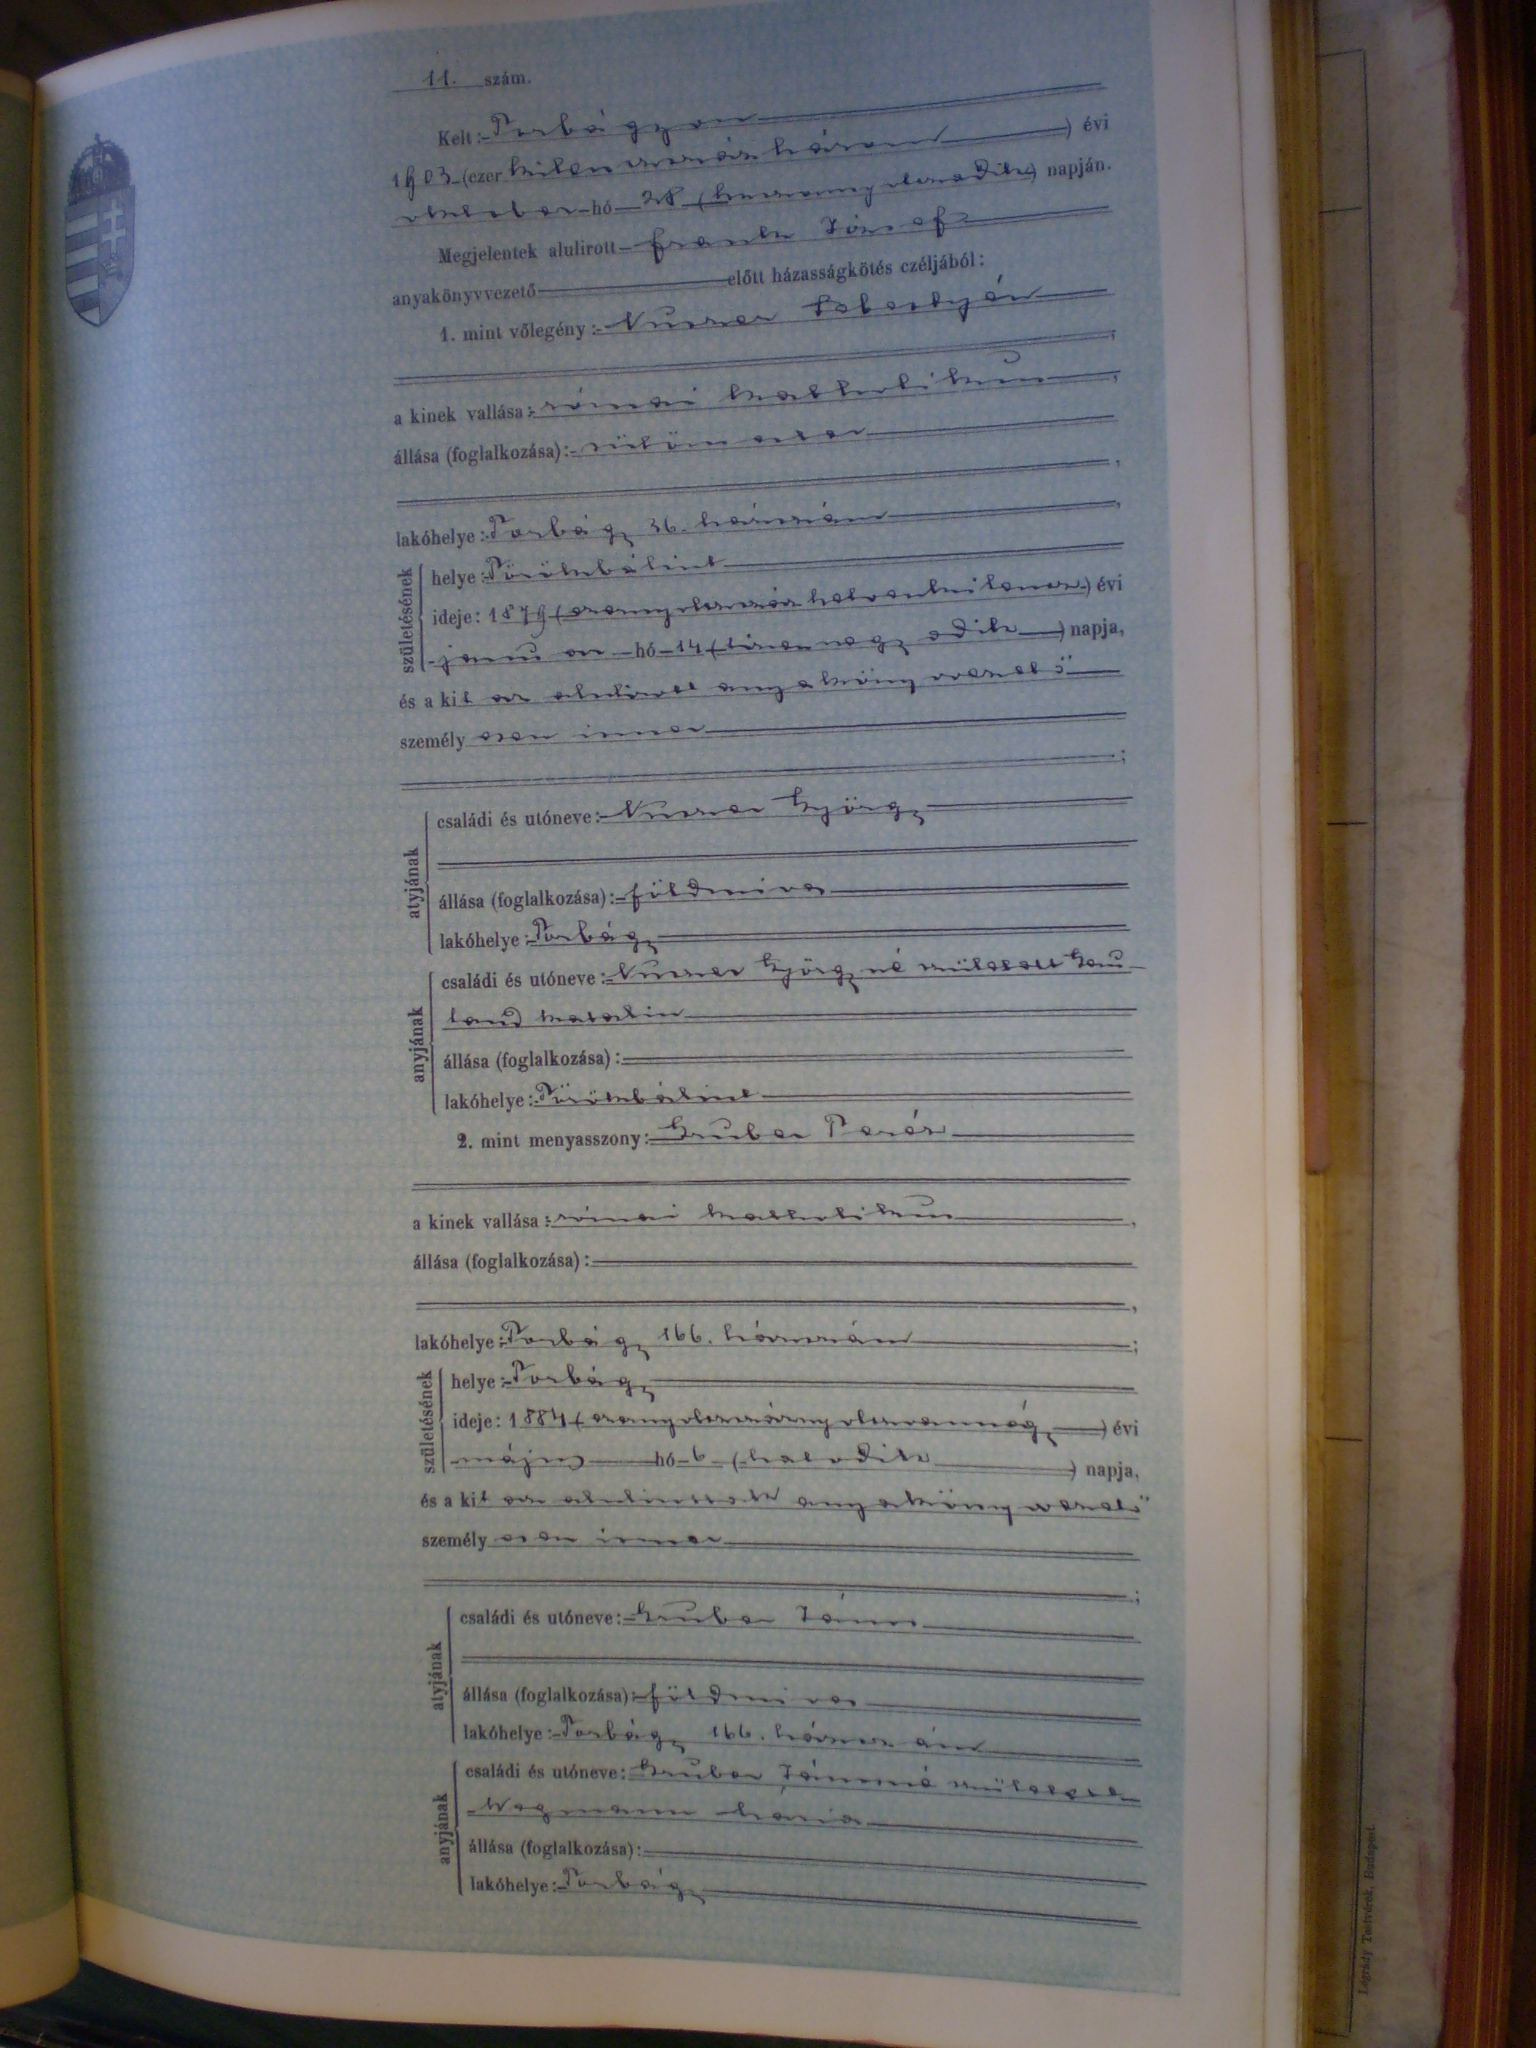 11. szám.
Kelt: Torbágyon
1903 (ezer kilenczszáz három) évi
október hó 28 (huszonnyolczadik) napján.
Megjelentek alulirott Frank József
anyakönyvvezető előtt házasságkötés czéljából:
1. mint vőlegény: Sebestyén
a kinek vallása: római katholikus
állása (foglalkozása): sütőmester
lakóhelye: Torbágy 36. házszám
születésének
helye: Törökbálint
ideje: 1879 (ezernyolczszáz hetvenkilencz) évi
január hó 14 (tizennegyedik) napja,
és a kit az alulirott anyakönyvvezető
személyesen ismer
;
atyjának
családi és utóneve: György
állása (foglalkozása): földmives
lakóhelye: Torbágy
anyjának
családi és utóneve: Györgyné született
Katalin
állása (foglalkozása):
lakóhelye: Törökbálint
2. mint menyasszony: Gruber Teréz
a kinek vallása: római katholikus,
állása (foglalkozása):
lakóhelye: Torbágy 166. házszám;
születésének
helye: Torbágy
ideje: 1884 (ezernyolczszáznyolczvannégy) évi
május hó 6 (hatodik) napja,
és a kit az alulirott anyakönyvvezető
személyesen ismer
;
atyjának
családi és utóneve: Gruber János
állása (foglalkozása): földmives
lakóhelye: Torbágy 166. házszám
anyjának
családi és utóneve: Gruber Jánosné született
Wegmann Mária
állása (foglalkozása):
lakóhelye: Torbágy
Légrády Testvérek, Budapest.